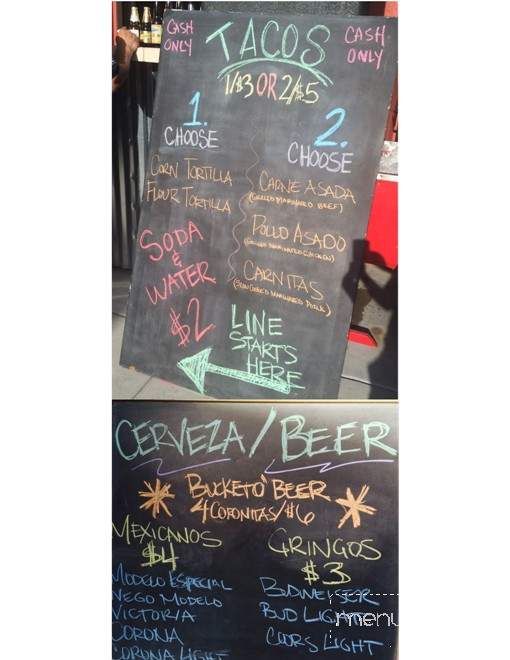 CASH
ONLY
TACOS
CASH
ONLY
1/$3 OR 2/$5
1.
CHOOSE
CORN TORTILLA
FLOUR TORTILLA
SODA
&
WATER
$2
2.
CHOOSE
CARNE ASADA
(GRILLED MARINATED BEEF)
POLLO ASADO
(GRILLED MARINATED CHICKEN)
CARNITAS
(SLOW COOKED MARINATED PORK)
LINE
STARTS
HERE
CERVEZA/BEER
BUCKET O' BEER
4 CORONITAS/$6
MEXICANOS
$4
MODELO ESPECIAL
NEGO MODELO
VICTORIA
CORONA
CORONA LIGHT
GRINGOS
$3
BUDWEISER
BUD LIGHT
COORS LIGHT
menu